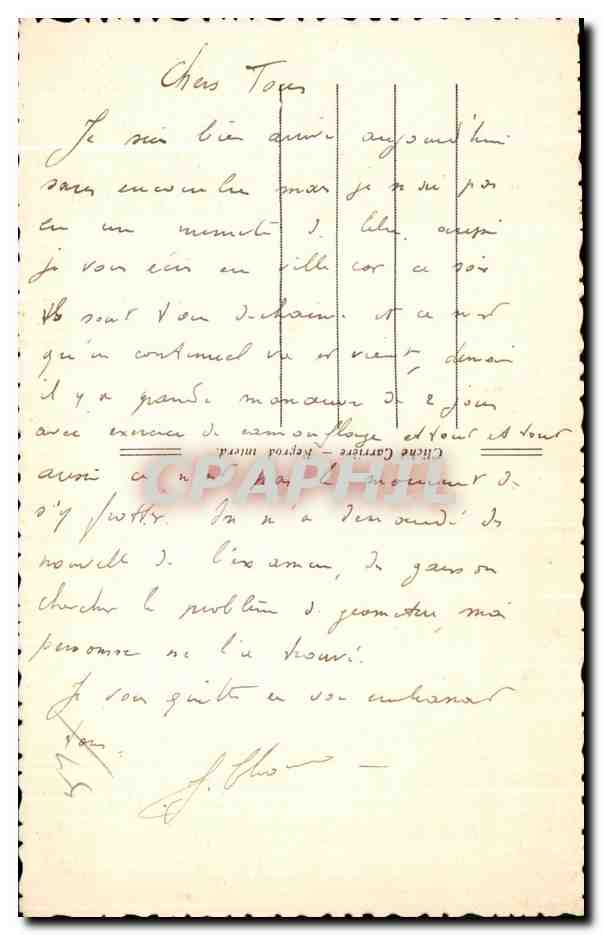 Chers Tous
Je suis bien arrivé aujourd'hui
sans encombre mais je n'ai pas
eu un minute de libre, aussi
je vous écris en ville car ce soir
ils sont tous déchainé et ce n'est
qu'un continuel va et vient, demain
il y a grande manœuvre de 2 jours
avec exercice de camouflage et tout et tout
Cliché Carrière — Reprod. interd.
aussi ce n'est pas le moment de
s'y frotter. On m'a demandé des
nouvelle de l'examen, des garçon
chercher le problème de géométrie, mai
personne ne l'a trouvé.
Je vous quitte en vous embrassant
tous.
CPAPHIL